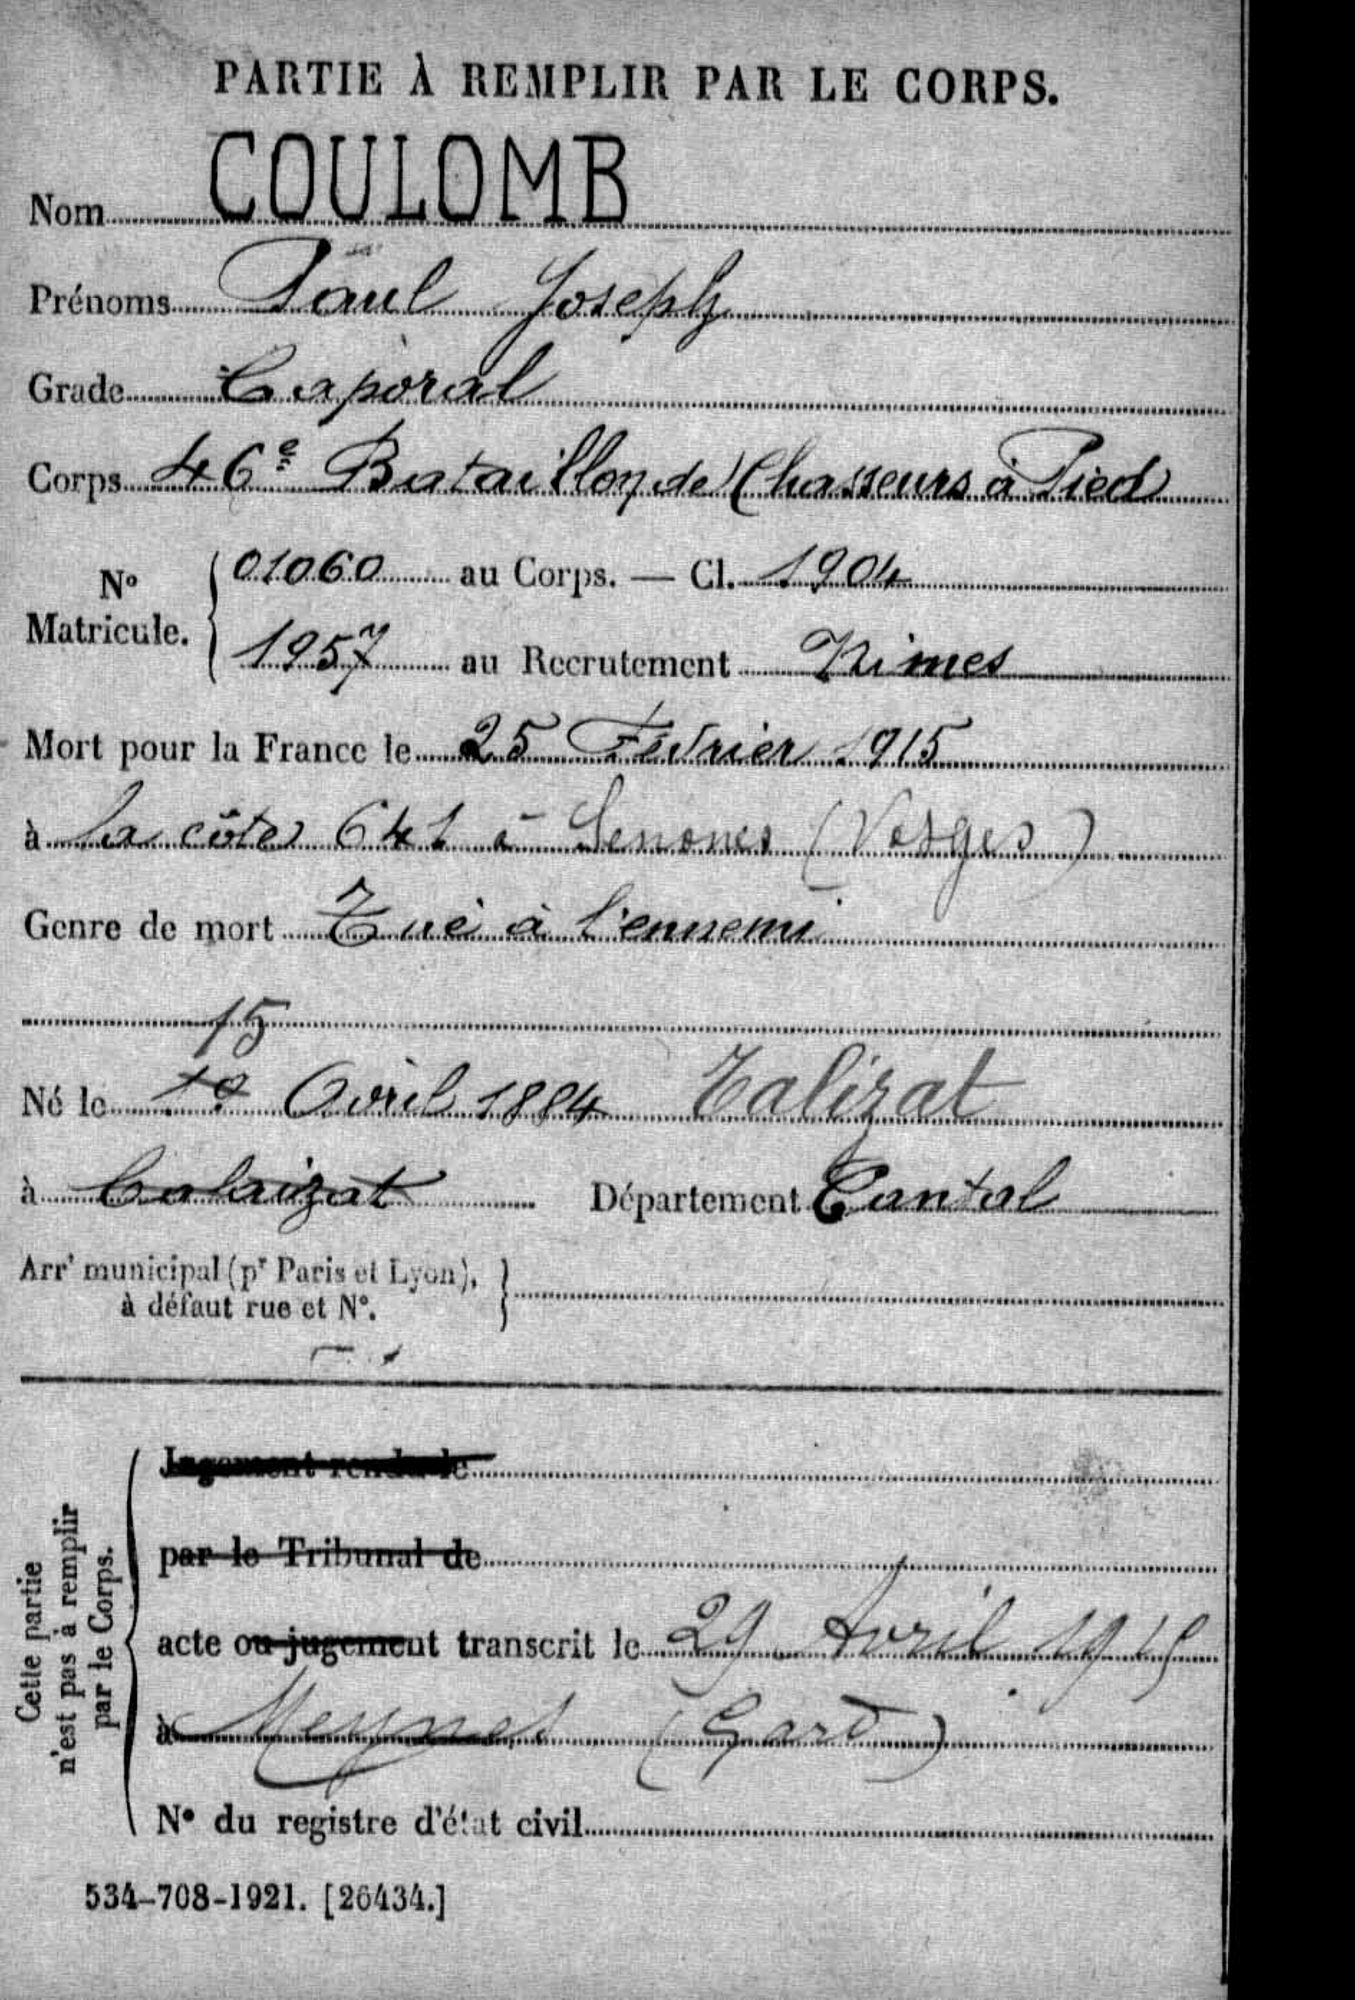 PARTIE À REMPLIR PAR LE CORPS.
Nom COULOMB
Prénoms Paul Joseph
Grade Caporal
Corps 46e Bataillon de Chasseurs à Pied
No Matricule. { 01060 au Corps. — Cl. 1904
1957 au Recrutement Nimes
Mort pour la France le 25 Février 1915
à la côte 641 à Senones (Vosges)
Genre de mort Tué à l'ennemi
15
Né le Avril 1884 Talizat
à Calaizat Département Cantal
Arrt municipal (pr Paris et Lyon), à défaut rue et No. }
Cette partie n'est pas à remplir par le Corps.
Jugement rendu le
par le Tribunal de
acte ou jugement transcrit le 29 Avril 1915
à Meynes (Gard)
No du registre d'état civil
534-708-1921. [26434.]